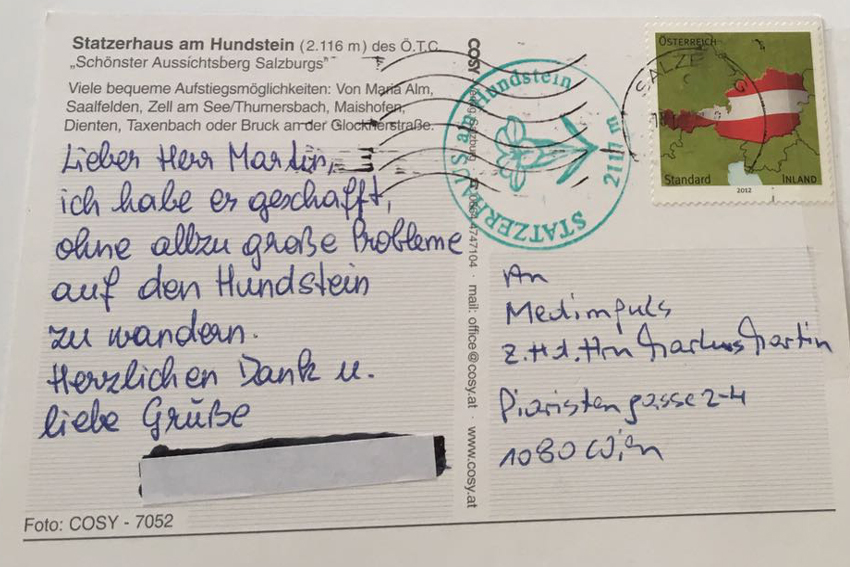 Statzerhaus am Hundstein (2.116 m) des Ö.T.C.
„Schönster Aussichtsberg Salzburgs"
Viele bequeme Aufstiegsmöglichkeiten: Von Maria Alm,
Saalfelden, Zell am See/Thumersbach, Maishofen,
Dienten, Taxenbach oder Bruck an der Glocknerstraße.
Lieber Herr Martin,
ich habe es geschafft,
ohne allzu große Probleme
auf den Hundstein
zu wandern.
Herzlichen Dank u.
liebe Grüße
Foto: COSY - 7052
COSY 4747104 · mail: office@cosy.at · www.cosy.at
STATZERHAUS am Hundstein 2117 m
SALZB G
ÖSTERREICH
Standard INLAND
2012
An
Medimpuls
z.Hd. Hrn Markus Martin
Piaristengasse 2-4
1080 Wien